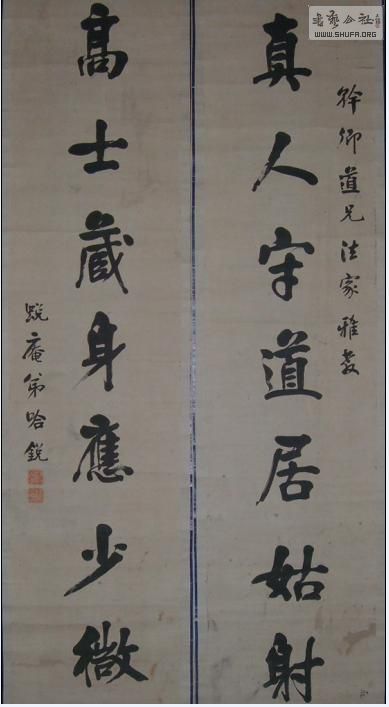 幹卿道兄法家雅教
真人守道居姑射
高士藏身應少微
蜕庵弟哈銳
書藝公社
WWW.SHUFA.ORG